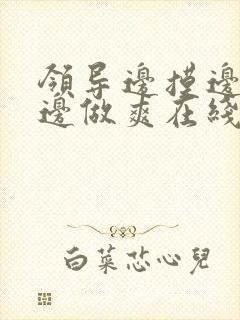 领导邊摸邊
邊做爽在綫
白菜芯心兒